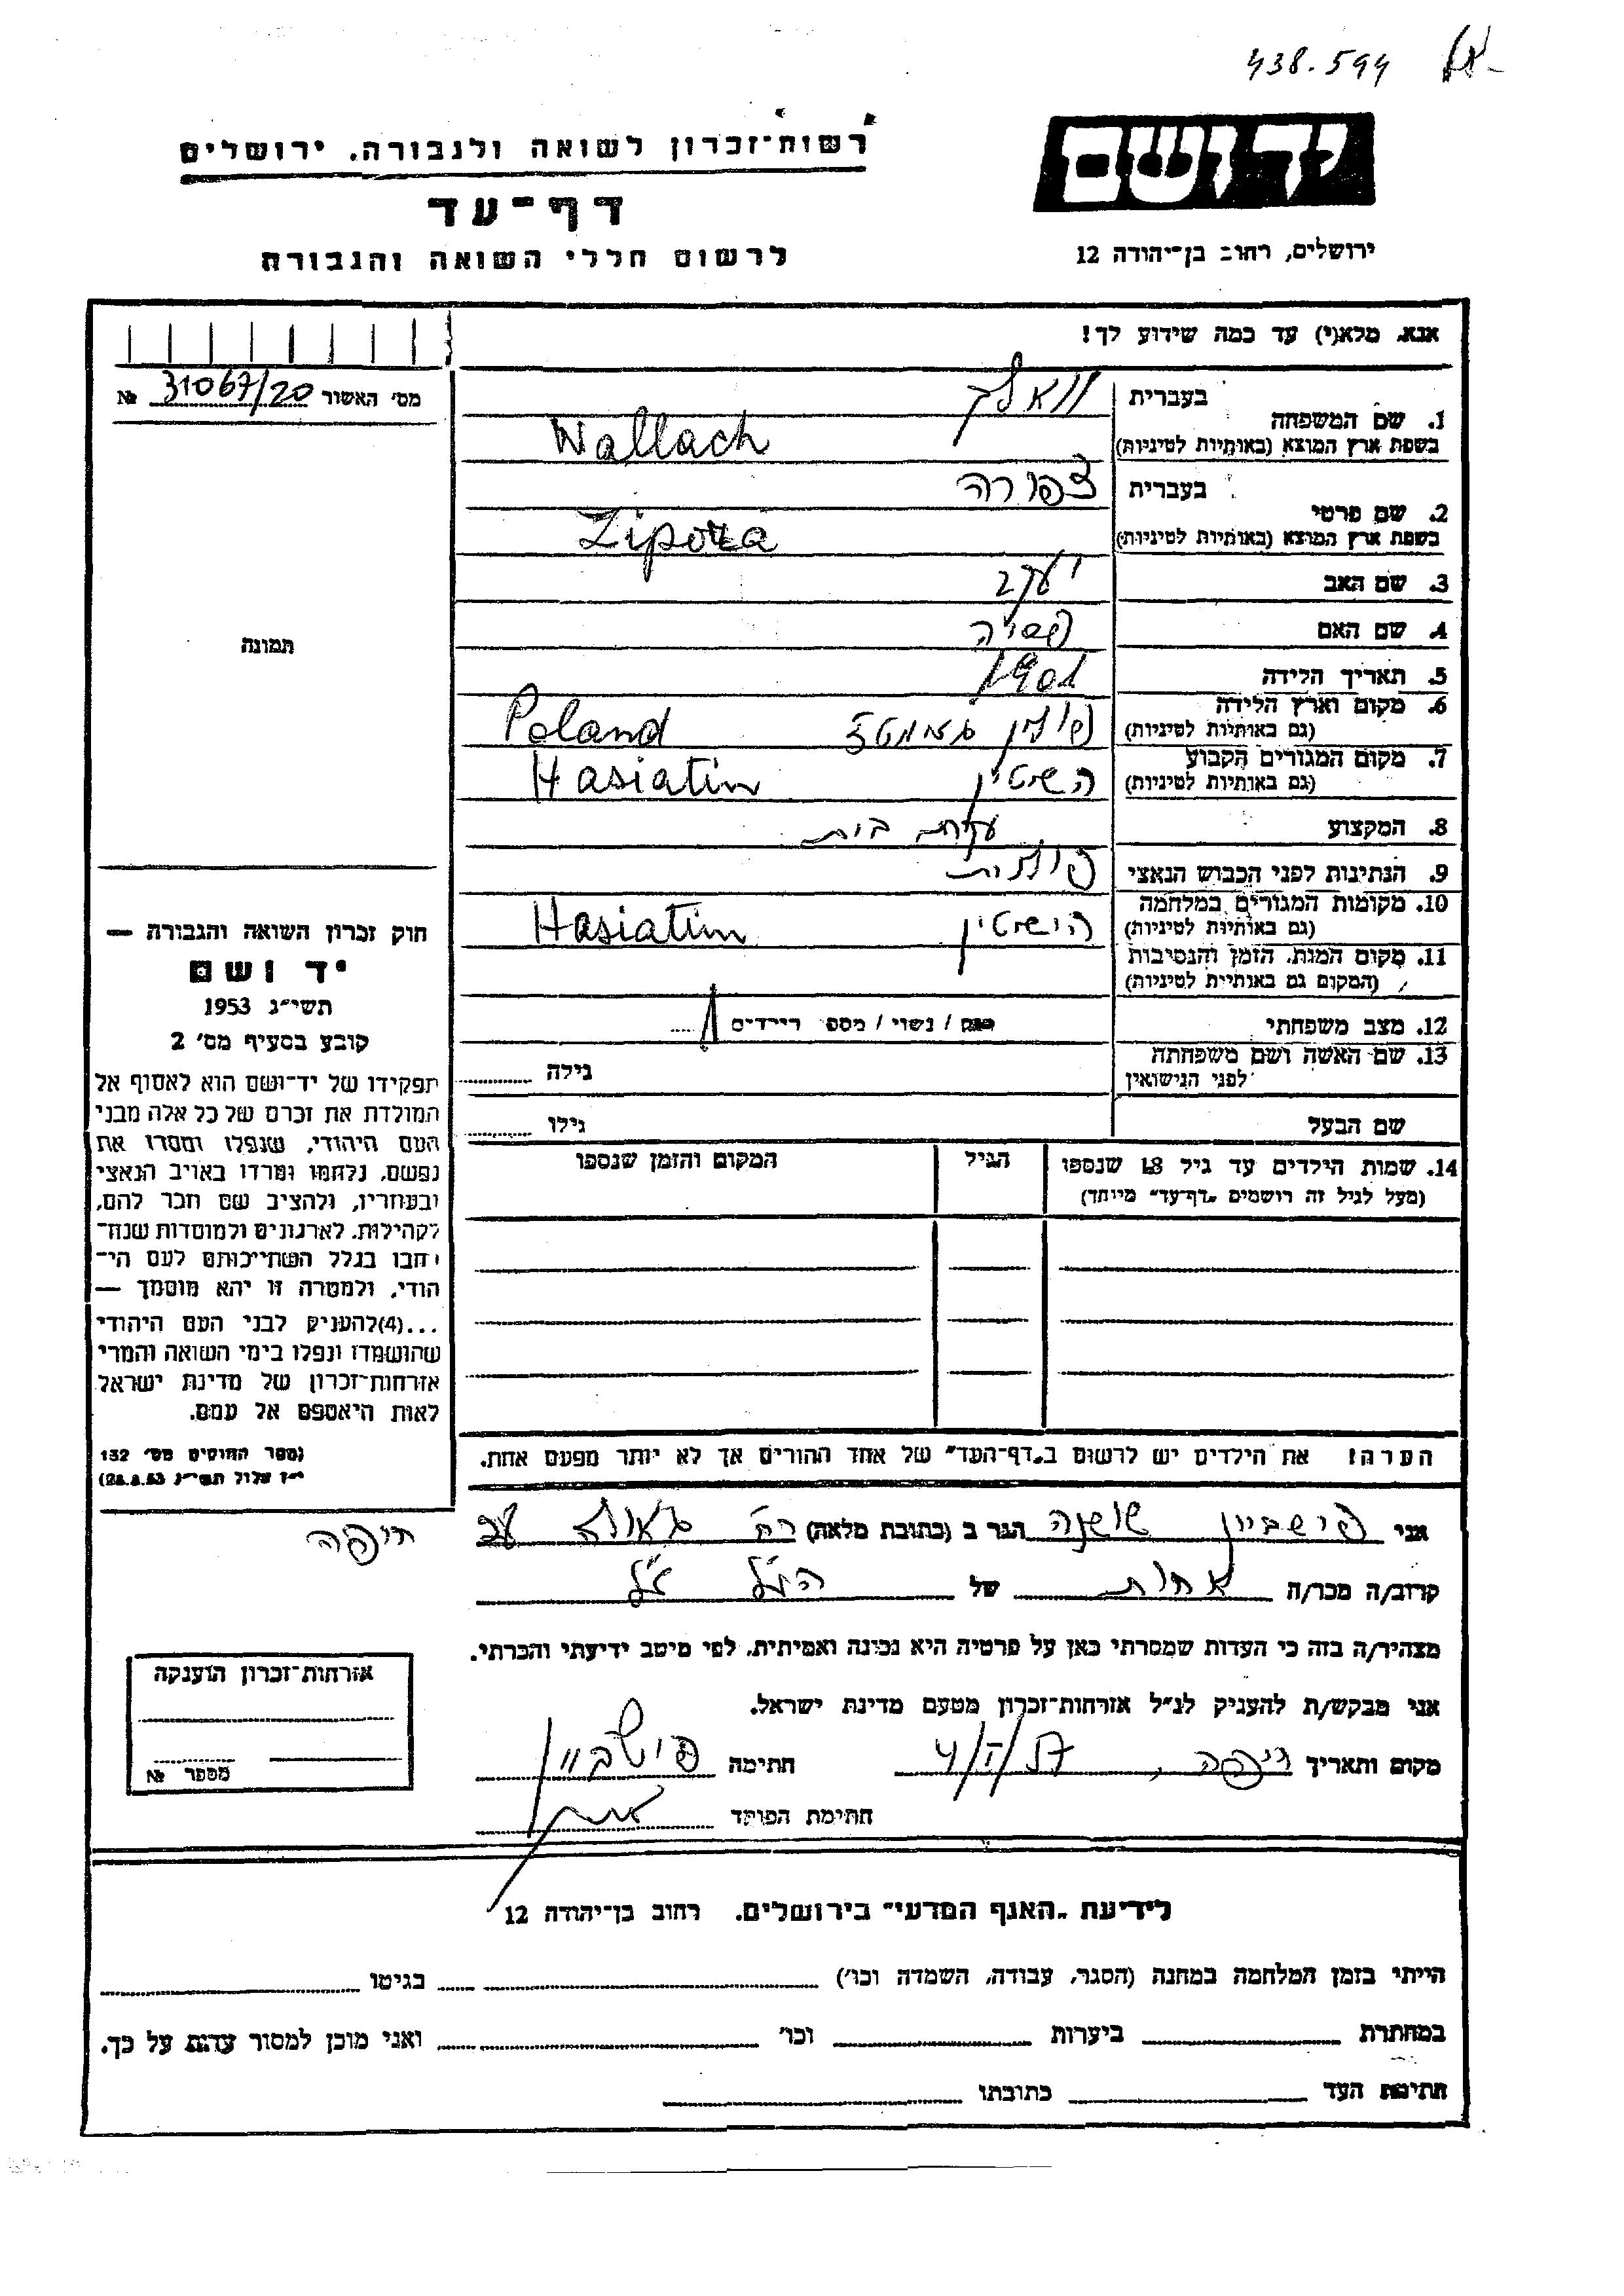 438.594
יד ושם
רשות-זכרון לשואה ולגבורה. ירושלים
דף-עד
לרשום חללי השואה והגבורה
ירושלים, רחוב בן-יהודה 12
אנא, מלא(י) עד כמה שידוע לך!
מס' האשור 31067/20 №
1. שם המשפחה
בעברית וואלך
בשפת ארץ המוצא (באותיות לטיניות) Wallach
2. שם פרטי
בעברית צפורה
בשפת ארץ המוצא (באותיות לטיניות) Zipora
3. שם האב יעקב
4. שם האם
5. תאריך הלידה 1901
6. מקום וארץ הלידה
(גם באותיות לטיניות) פולין Poland
7. מקום המגורים הקבוע
(גם באותיות לטיניות) השיטין Hasiatin
8. המקצוע עקרת בית
9. הנתינות לפני הכבוש הנאצי פולנית
10. מקומות המגורים במלחמה
(גם באותיות לטיניות) הושיטין Hasiatin
11. מקום המות, הזמן והנסיבות
(המקום גם באותיות לטיניות)
12. מצב משפחתי רווק / נשוי / מספר הילדים
13. שם האשה ושם משפחתה
לפני הנישואין גילה
שם הבעל גילו
14. שמות הילדים עד גיל 18 שנספו הגיל המקום והזמן שנספו
(מעל לגיל זה רושמים „דף-עד" מיוחד)
הערה: את הילדים יש לרשום ב„דף-העד" של אחד ההורים אך לא יותר מפעם אחת.
תמונה
חוק זכרון השואה והגבורה —
יד ושם
תשי"ג 1953
קובע בסעיף מס' 2
תפקידו של יד-ושם הוא לאסוף אל
המולדת את זכרם של כל אלה מבני
העם היהודי, שנפלו ומסרו את
נפשם, נלחמו ומרדו באויב הנאצי
ובעוזריו, ולהציב שם וזכר להם,
לקהילות, לארגונים ולמוסדות שנח-
רבו בגלל השתייכותם לעם הי-
הודי, ולמטרה זו יהא מוסמך —
...(4)להעניק לבני העם היהודי
שהושמדו ונפלו בימי השואה והמרי
אזרחות-זכרון של מדינת ישראל
לאות היאספם אל עמם.
(ספר החוקים מס' 132
י"ז אלול תשי"ג 28.8.53)
אני פישביין שושנה הגר ב (כתובת מלאה) רח' גאולה
חיפה
קרוב/ה מכר/ה אחות של הנ"ל
מצהיר/ה בזה כי העדות שמסרתי כאן על פרטיה היא נכונה ואמיתית, לפי מיטב ידיעתי והכרתי.
אני מבקש/ת להעניק לנ"ל אזרחות-זכרון מטעם מדינת ישראל.
מקום ותאריך חיפה, חתימה פישביין
חתימת הפוקד
אזרחות-זכרון הוענקה
מספר №
לידיעת „האגף המדעי" בירושלים. רחוב בן-יהודה 12
הייתי בזמן המלחמה במחנה (הסגר, עבודה, השמדה וכו') בגיטו
במחתרת ביערות וכו' ואני מוכן למסור עדות על כך.
חתימת העד כתובתו